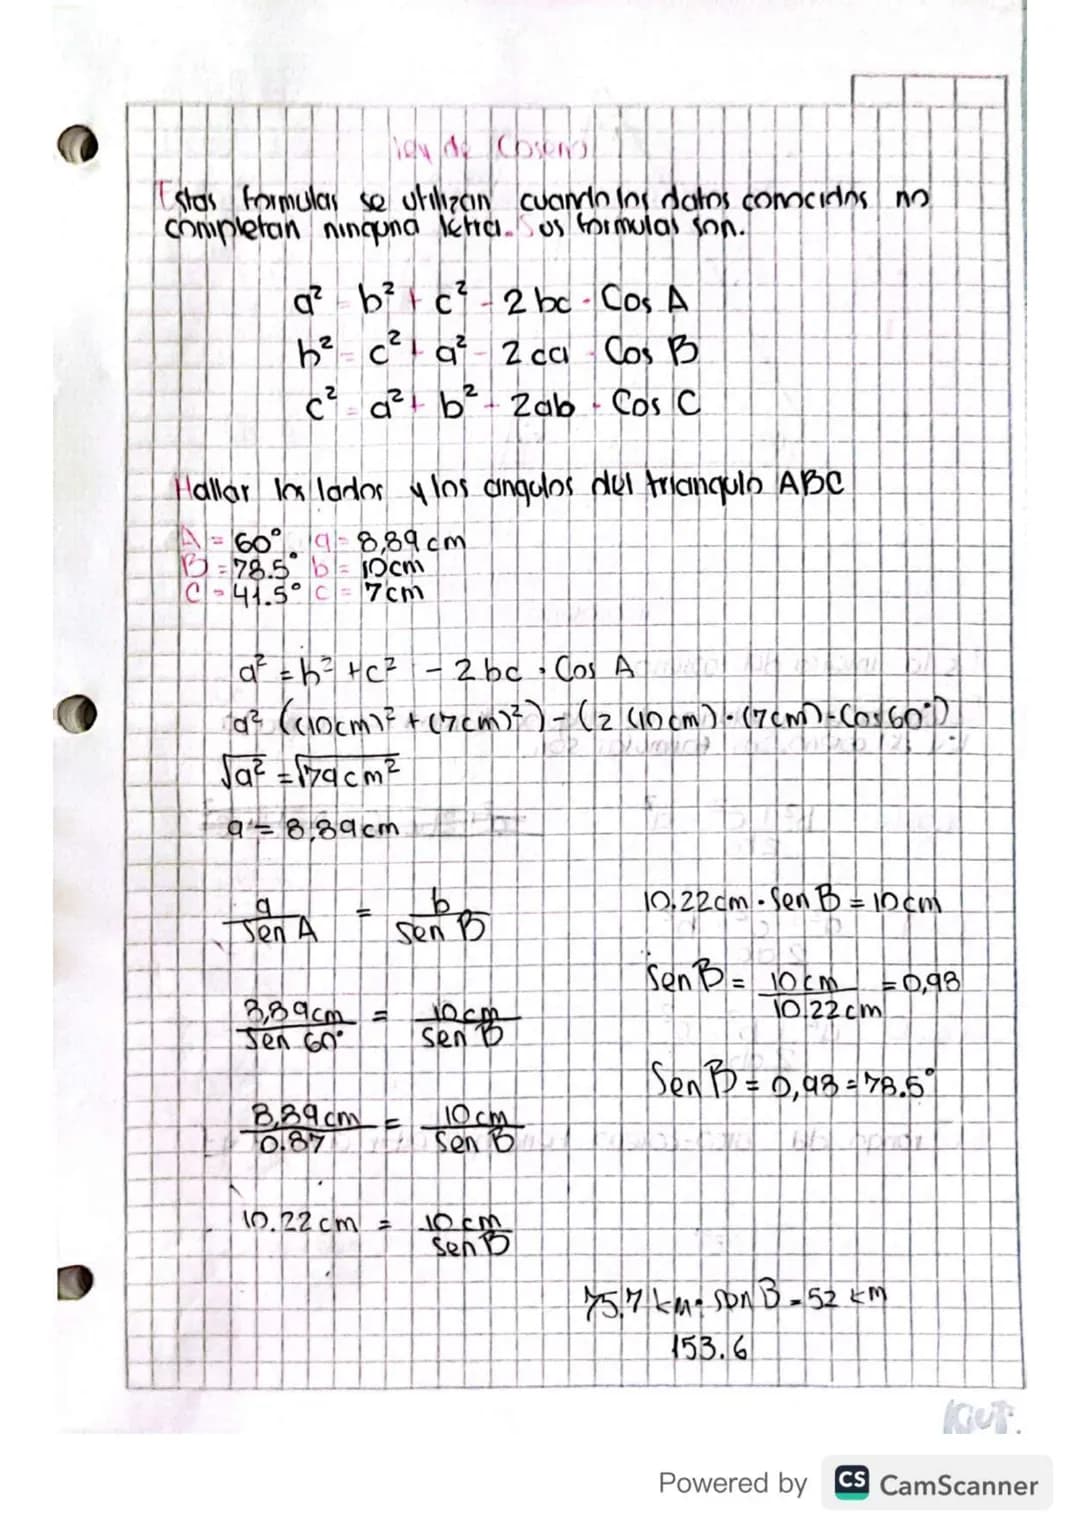 ley de Coseno
Estas formulas se utilizan cuando los datos conocidos no
completan ninguna letra. Sus formulas son.
a² = b² + c² - 2bc · Cos A
b² = c² + a² - 2ca · Cos B
c² = a² + b² - 2ab · Cos C
Hallar los lados y los angulos del triangulo ABC
A = 60° a = 8,89 cm
B = 78.5° b = 10cm
C = 41.5° c = 7cm
a² = b² + c² - 2bc · Cos A
a² ((10cm)² + (7cm)²) - (2 (10cm) · (7cm) - Cos 60°)
√a² = √79cm²
a = 8,89cm
a / Sen A = b / Sen B
8,89cm / Sen 60° = 10cm / Sen B
8,89cm / 0.87 = 10cm / Sen B
10.22cm = 10cm / Sen B
10.22cm · Sen B = 10cm
Sen B = 10cm / 10.22cm = 0,98
Sen B = 0,98 = 78.5°
75.7 km · sen B = 52 km
153.6
Powered by CS CamScanner